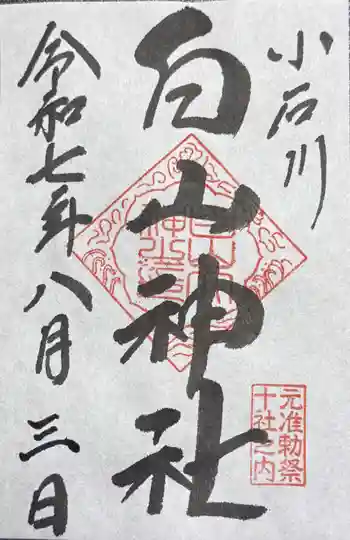 小石川
白山神社
元准勅祭
十社之内
令和七年八月三日